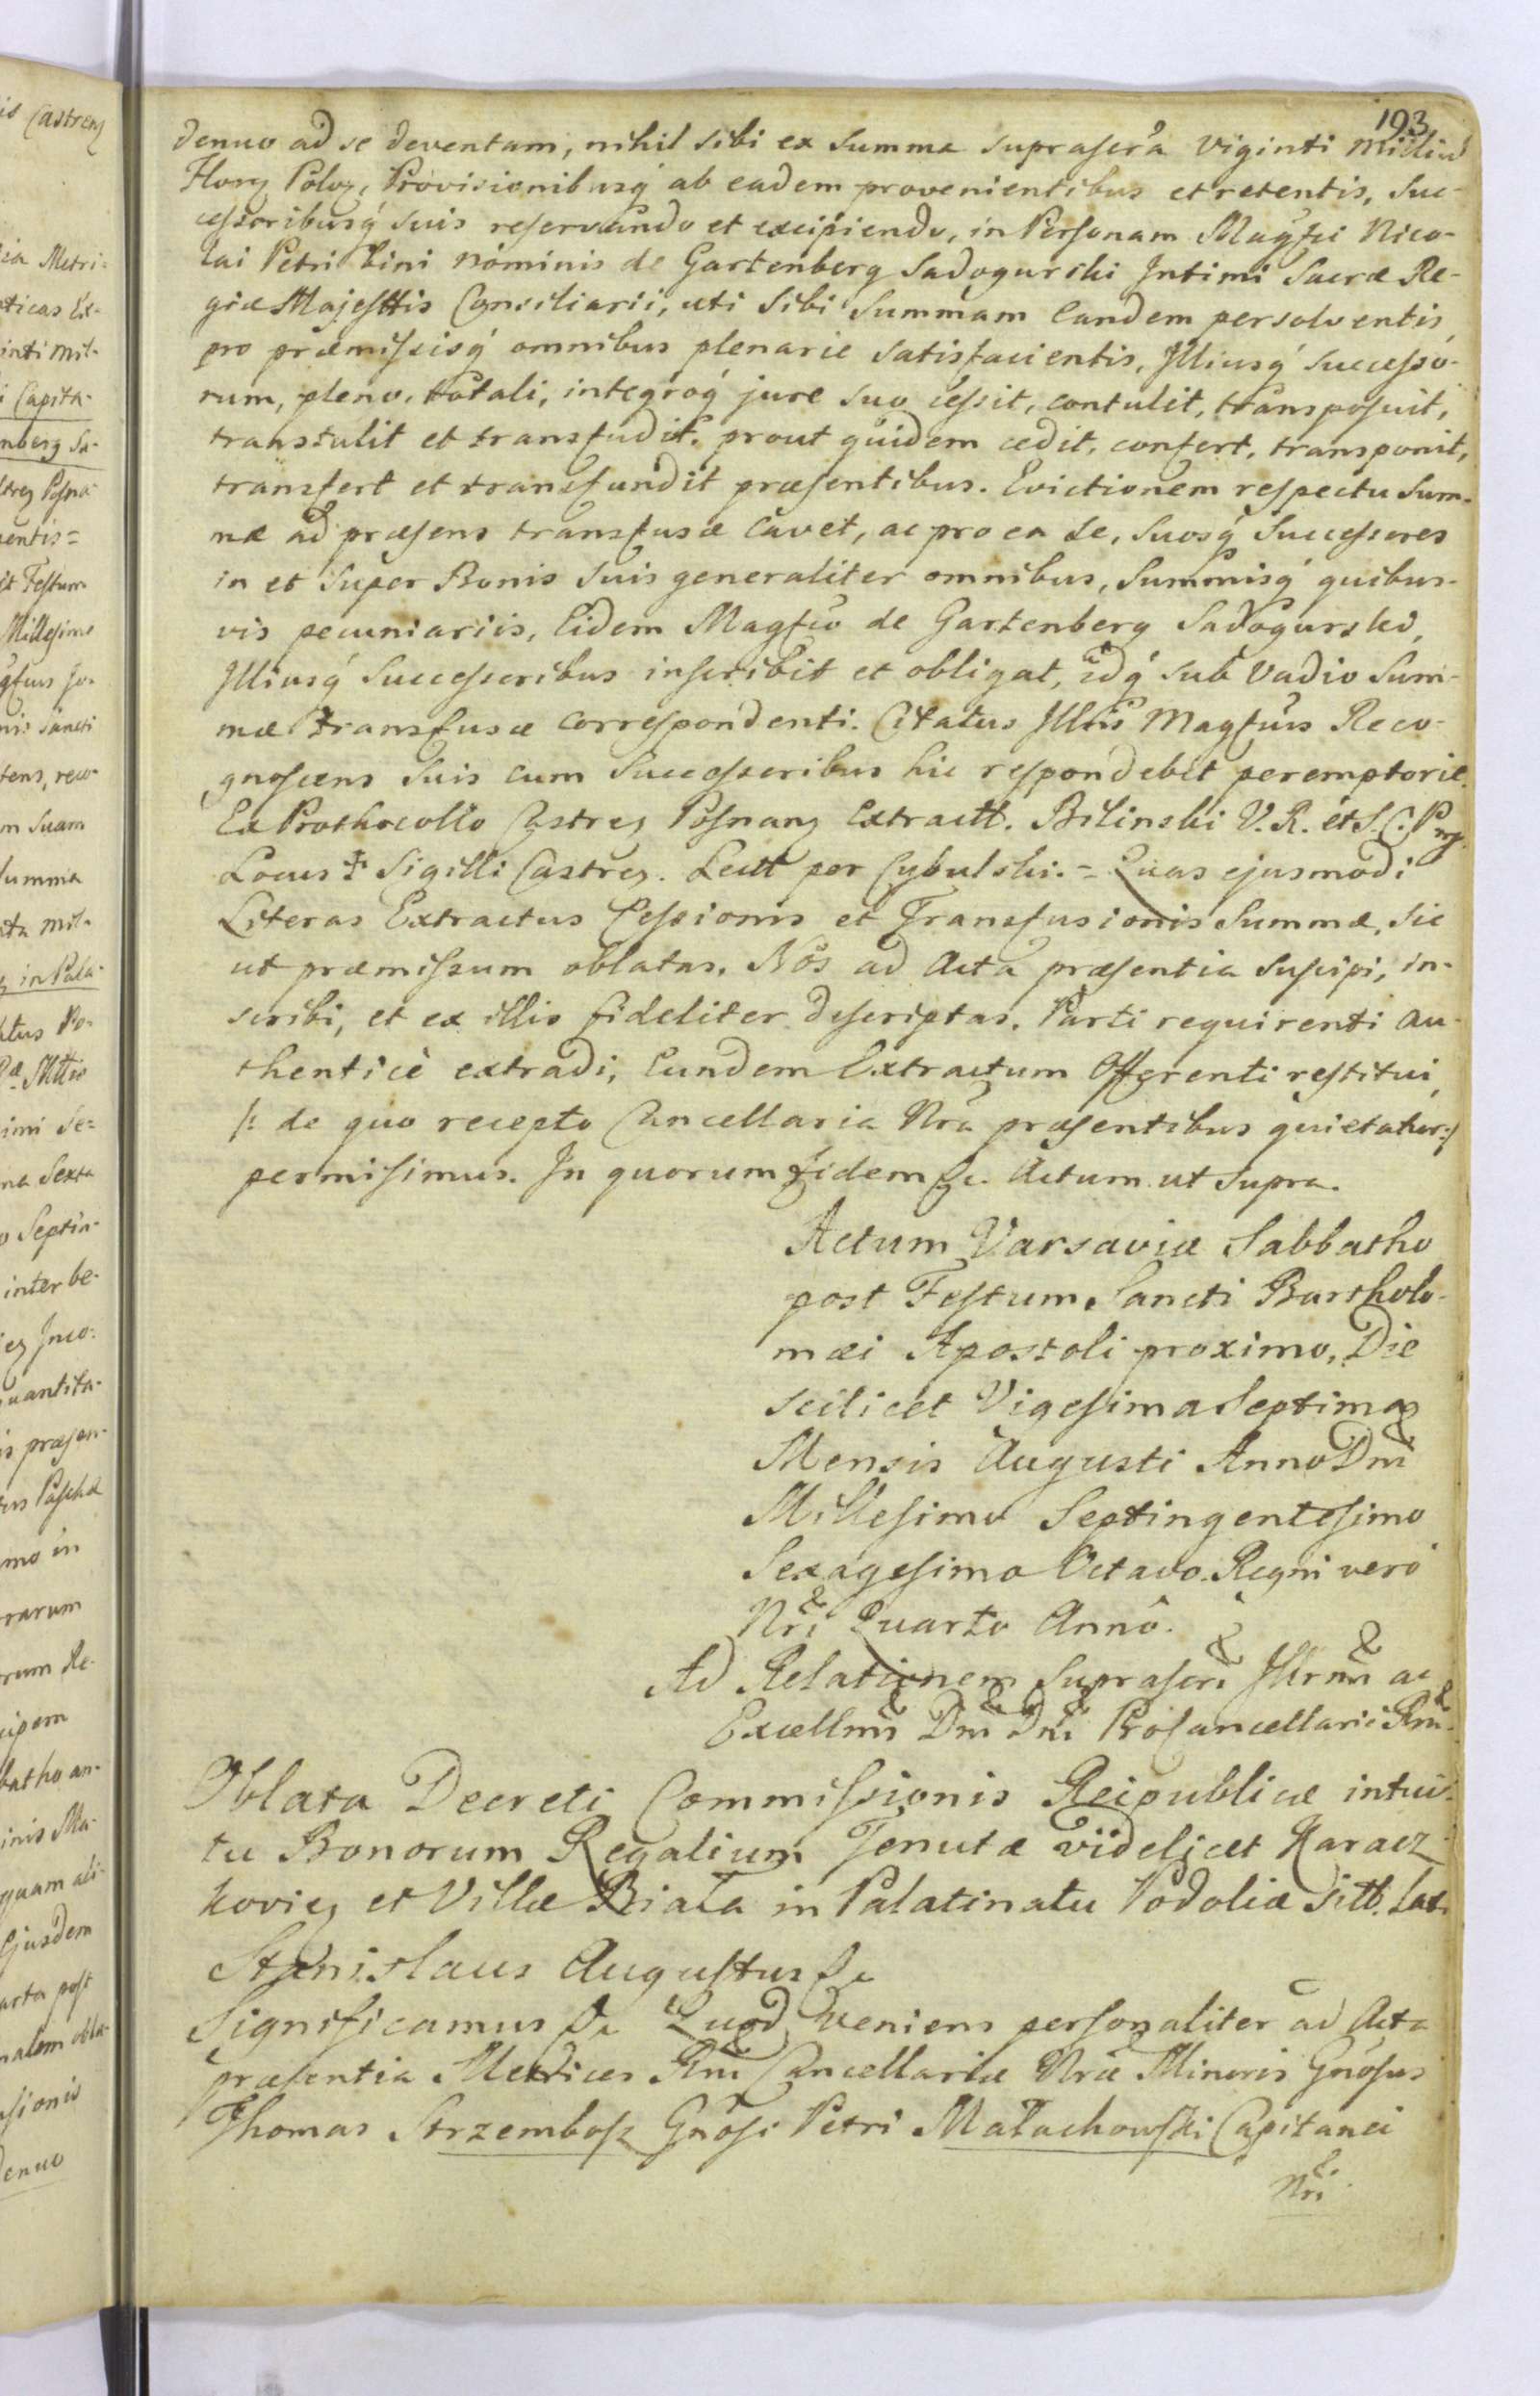 193
denuo ad se deventam, nihil sibi ex Summa suprascrã Viginti Milliũ
Floreň Polon, Provisionibusq́ ab eadem provenientibus et retentis, Suc-
cessoribusq́ suis reservando et excipiendo, in Personam Magfci Nico-
lai Petri bini nominis de Gartenberg Sadogurski Intimi Sacræ Re-
giæ Majesttis Consiliarii, uti Sibi Summam Eandem persolventis,
pro præmissisq́ omnibus plenarie satisfacientis, Illiusq́ Successo-
rum, pleno, totali, integroq́ jure suo cessit, contulit, transposuit,
transtulit et transfudit. prout quidem cedit, confert, transponit,
transfert et transfundit præsentibus. Evictionem respectu Sum-
mæ ad præsens transfusæ cavet, ac pro ea se, Suosq́ Successores
in et Super Bonis suis generaliter omnibus, Summisq́ quibus-
vis pecuniariis, Eidem Magfco de Gartenberg Sadogurski,
Illiusq́ Successoribus inscribit et obligat, idq́ sub Vadio Sum-
mæ transfusæ correspondenti. Citatus Illris Magfcus Reco-
gnoscens Suis cum Successoribus hic respondebit peremptorie.
Ex Prothocollo Castreň Posnan Extractt. Bilinski V. R. et S. C. P mp
Locus Sigilli Castreň. Lectt per Cybulski. = Quas ejusmodi
Literas Extractus Cessionis et Transfusionis Summæ, sic
ut præmissum oblatas, Nos ad Acta præsentia suscipi, in-
scribi, et ex illis fideliter descriptas, Parti requirenti au-
thenticè extradi, Eundem Extractum Offerenti restitui,
/: de quo recepto Cancellaria Nra præsentibus quietatur :/
permisimus. In quorum fidem &c. Actum ut Supra.
Actum Varsaviæ Sabbatho
post Festum Sancti Bartholo-
mæi Apostoli proximo, Die
scilicet Vigesima Septima
Mensis Augusti Anno Dnĩ
Millesimo Septingentesimo
Sexagesimo Octavo. Regni verò
Nrĩ Quarto Anno.
Ad Relationem Suprascrĩ Illrmĩ ac
Excellmĩ Dnĩ Dnĩ Procancellarii Rnĩ.
Oblata Decreti Commissionis Reipublicæ intui-
tu Bonorum Regalium Tenutæ videlicet Karacz-
kovieç et Villæ Biała in Palatinatu Podoliæ sitt. lat.
Stanislaus Augustus &c
Significamus &c Quod veniens personaliter ad Acta
præsentia Metrices Rnĩ Cancellariæ Nræ Minoris Gnosus
Thomas Strzembosz Gnosi Petri Małachowski Capitanei
Nrĩ
is Castreň
ia Metri-
ticas Ex-
inti mil-
i Capita-
nberg Sa-
treň Posna-
entis=
it Festum
Millesimo
gfcus Jo-
nis Sancti
tens, reco-
m suam
umma
ta mil-
in Pala-
atus Po-
Mttis
imi Se=
na Sexta
o Septin-
inter be-
Inco-
quantita-
is præsen-
us Paschæ
mo in
rarum
rum Re-
cipem
batho an-
inis Ma-
quam ali-
Ejusdem
arta post
nalem obla-
sionis
denuo